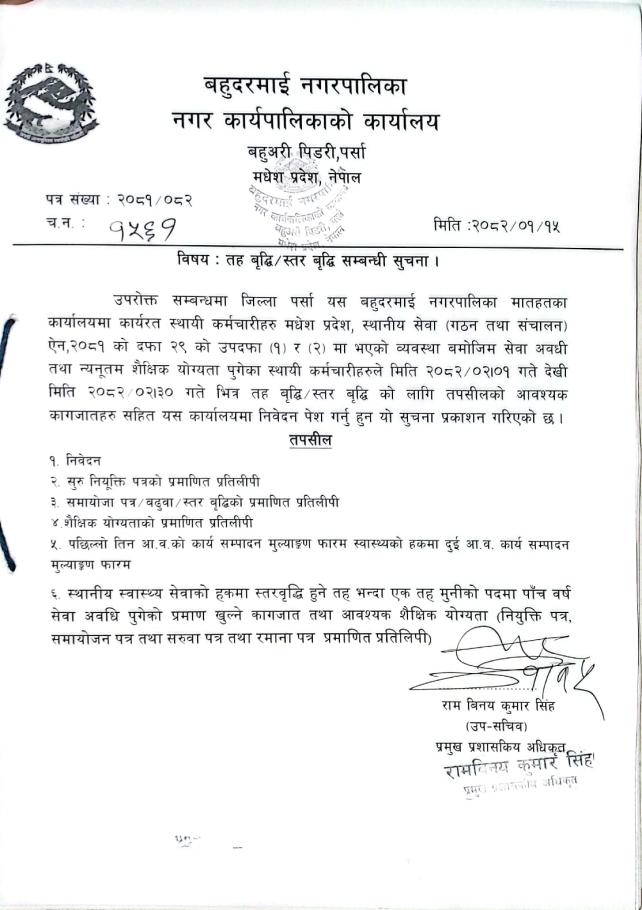 बहुदरमाई नगरपालिका
नगर कार्यपालिकाको कार्यालय
बहुअरी पिडरी,पर्सा
मधेश प्रदेश, नेपाल
बहुदरमाई नगरपालिका
नगर कार्यपालिकाको कार्यालय
बहुअरी पिडरी, पर्सा
मधेश प्रदेश, नेपाल
पत्र संख्या : २०८१/०८२
च.न. : १५६१
मिति :२०८२/०१/१५
विषय : तह बृद्धि/स्तर बृद्धि सम्बन्धी सुचना ।
उपरोक्त सम्बन्धमा जिल्ला पर्सा यस बहुदरमाई नगरपालिका मातहतका
कार्यालयमा कार्यरत स्थायी कर्मचारीहरु मधेश प्रदेश, स्थानीय सेवा (गठन तथा संचालन)
ऐन,२०८१ को दफा २९ को उपदफा (१) र (२) मा भएको व्यवस्था बमोजिम सेवा अवधी
तथा न्यनूतम शैक्षिक योग्यता पुगेका स्थायी कर्मचारीहरुले मिति २०८२/०२।०१ गते देखी
मिति २०८२/०२।३० गते भित्र तह बृद्धि/स्तर बृद्धि को लागि तपसीलको आवश्यक
कागजातहरु सहित यस कार्यालयमा निवेदन पेश गर्नु हुन यो सुचना प्रकाशन गरिएको छ ।
तपसील
१. निवेदन
२. सुरु नियूक्ति पत्रको प्रमाणित प्रतिलीपी
३. समायोजा पत्र/बढुवा/स्तर बृद्धिको प्रमाणित प्रतिलीपी
४.शैक्षिक योग्यताको प्रमाणित प्रतिलीपी
५. पछिल्लो तिन आ.व.को कार्य सम्पादन मुल्याङ्कण फारम स्वास्थ्यको हकमा दुई आ.व. कार्य सम्पादन
मुल्याङ्कण फारम
६. स्थानीय स्वास्थ्य सेवाको हकमा स्तरवृद्धि हुने तह भन्दा एक तह मुनीको पदमा पाँच वर्ष
सेवा अवधि पुगेको प्रमाण खुल्ने कागजात तथा आवश्यक शैक्षिक योग्यता (नियुक्ति पत्र,
समायोजन पत्र तथा सरुवा पत्र तथा रमाना पत्र प्रमाणित प्रतिलिपी)
राम बिनय कुमार सिंह
(उप-सचिव)
प्रमुख प्रशासकिय अधिकृत
रामविनय कुमार सिंह
प्रमुख प्रशासकीय अधिकृत